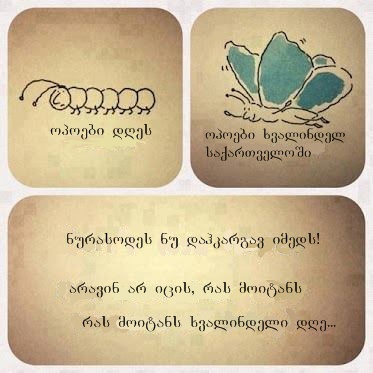 ოპოები დღეს
ოპოები ხვალინდელ
საქართველოში
ნურასოდეს ნუ დაჰკარგავ იმედს!
არავინ არ იცის, რას მოიტანს
რას მოიტანს ხვალინდელი დღე...